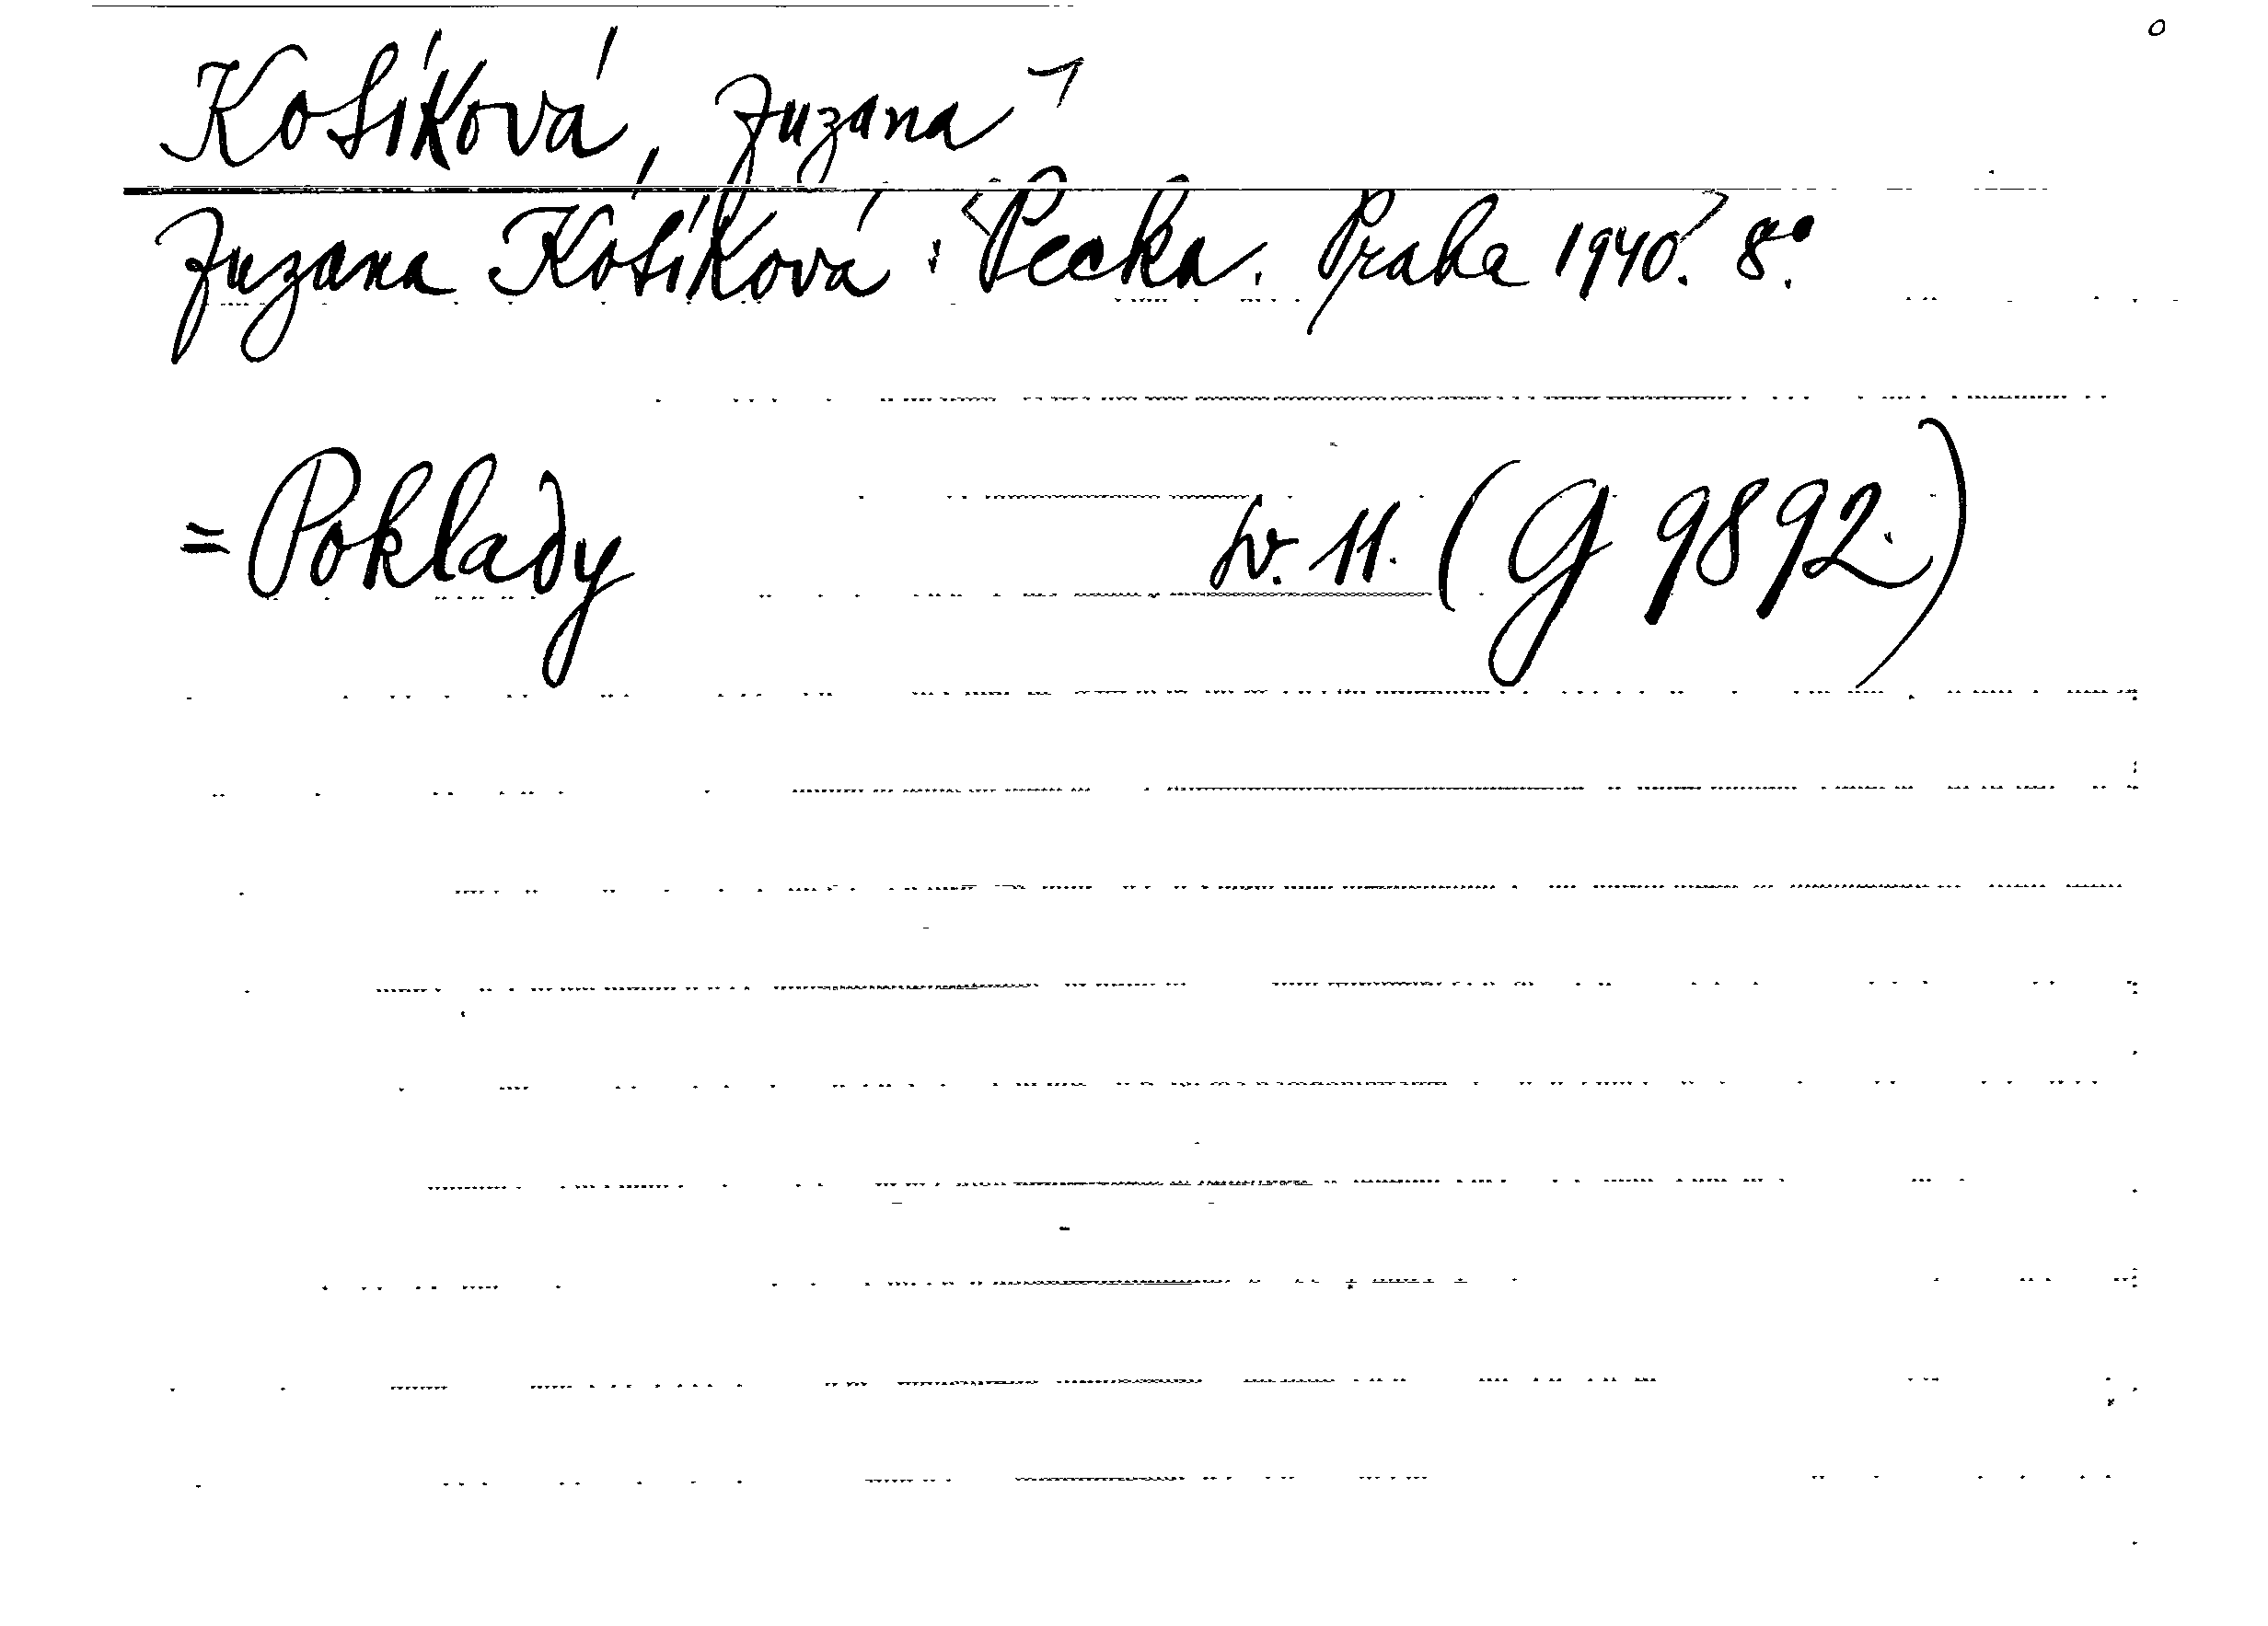 Kosíková, Zuzana
Zuzana Kosíková: Pecka. Praha 1940. 8°.
= Poklady sv. 11. (G 9892.)